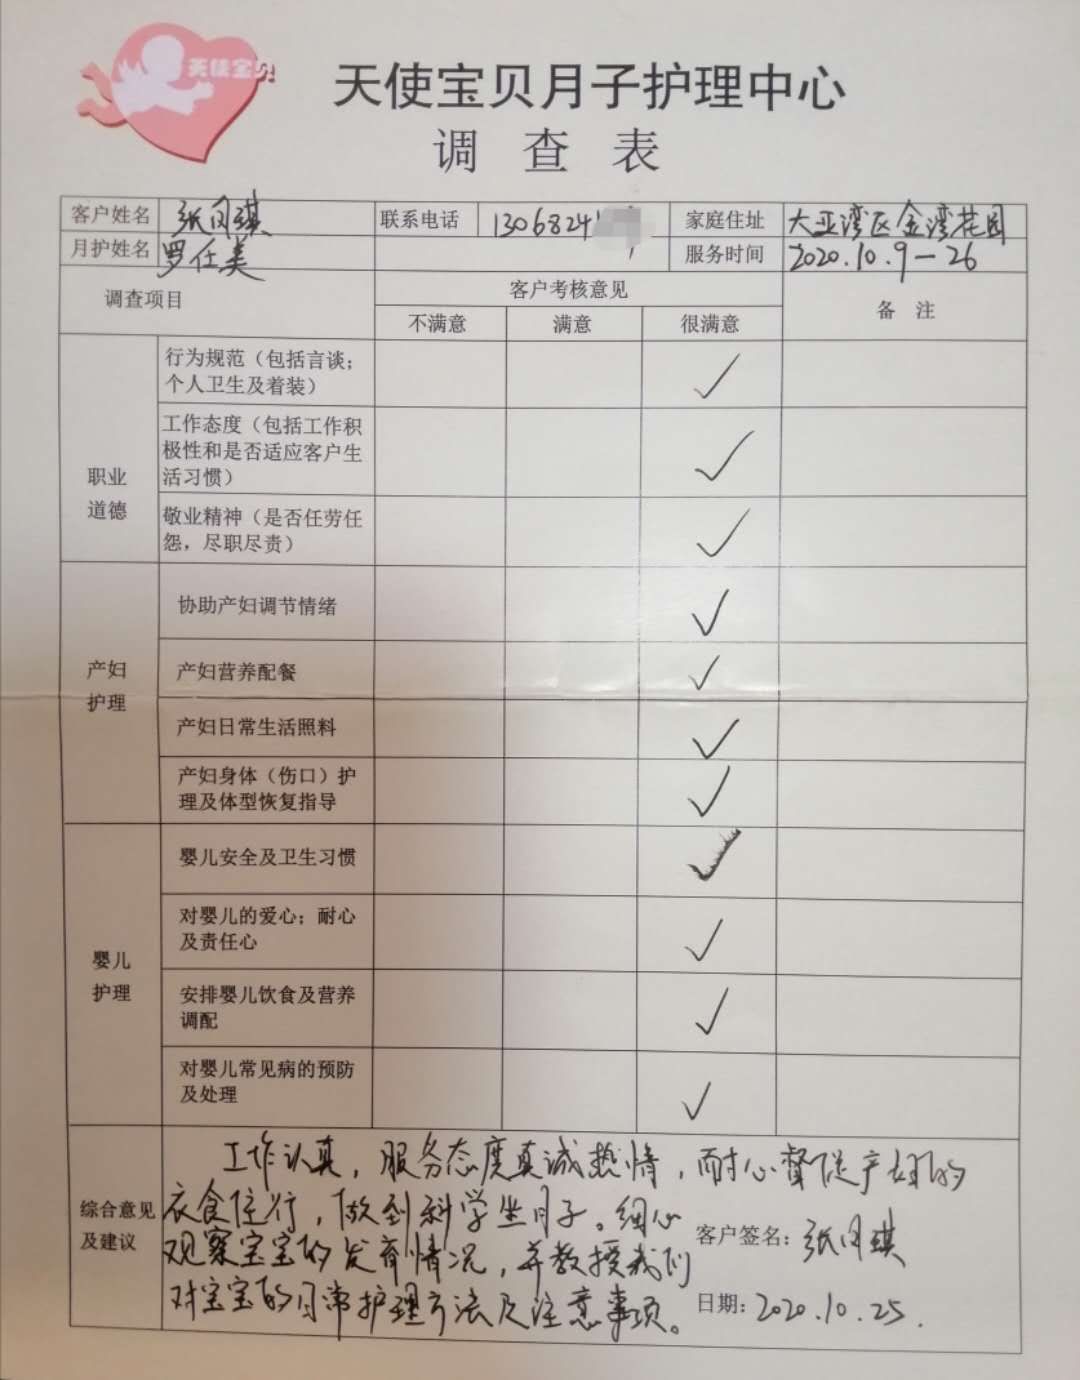 天使宝贝
天使宝贝月子护理中心
调查表
客户姓名 张月琪 联系电话 1306824 家庭住址 大亚湾区金湾花园
月护姓名 罗任美 服务时间 2020.10.9-26
调查项目 客户考核意见 备 注
不满意 满意 很满意
职业
道德
行为规范（包括言谈；
个人卫生及着装）
工作态度（包括工作积
极性和是否适应客户生
活习惯）
敬业精神（是否任劳任
怨，尽职尽责）
产妇
护理
协助产妇调节情绪
产妇营养配餐
产妇日常生活照料
产妇身体（伤口）护
理及体型恢复指导
婴儿
护理
婴儿安全及卫生习惯
对婴儿的爱心；耐心
及责任心
安排婴儿饮食及营养
调配
对婴儿常见病的预防
及处理
综合意见
及建议
工作认真，服务态度真诚热情，耐心督促产妇的
衣食住行，做到科学坐月子。细心
观察宝宝的发育情况，并教授我们
对宝宝的日常护理方法及注意事项。
客户签名：张月琪
日期：2020.10.25.